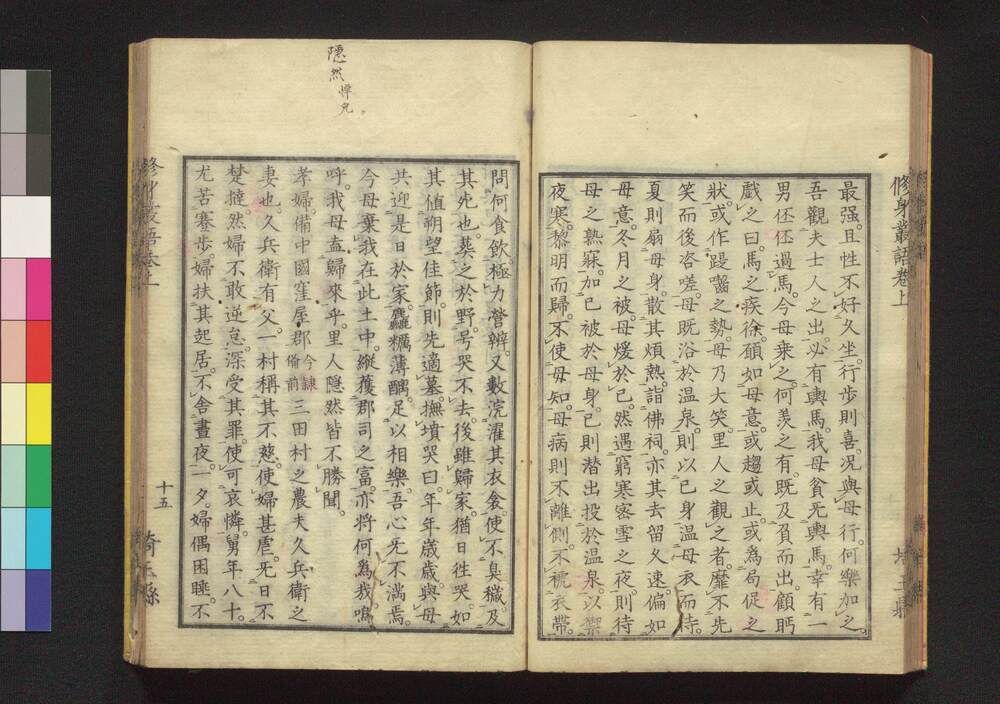 最强。且性不好久坐。行歩則喜。况與母行。何樂加之。
吾觀夫士人之出。必有輿馬。我母貧无輿馬。幸有一
男伾伾過馬。今母乗之。何羨之有。既及負而出。顧眄
戲之曰。馬之疾徐。願如母意。或趨或止。或為局促之
狀。或作踶齧之勢。母乃大笑。里人之觀之者。靡不先
笑而後咨嗟。母既浴於温泉。則以已身温母衣而待。
夏則扇母身。散其煩熱。詣佛祠。亦其去留久速。偏如
母意。冬月之被。母煖於已。然遇窮寒密雪之夜。則待
母之熟寐。加已被於母身。已則潜出投於温泉。以禦
夜寒。黎明而歸。不使母知。母病則不離側。不梲衣帶。
修身叢語卷上
隱然
悍免
問何食飲。極力營辨。又數浣濯其衣衾。使不臭穢。及
其死也。葬之於野。号哭不去。後雖歸家。猶日徃哭。如
其值朔望佳節。則先適墓。撫墳哭曰。年年歳歳。與母
共迎是日於家。麤糲薄醨。足以相樂。吾心无不満焉。
今母棄我在此土中。縱獲郡司之富。亦将何為我。鳴
呼。我母盍歸來乎。里人隱然皆不勝聞。
孝婦。備中國窪屋郡今隷備前三田村之農夫久兵衛之
妻也。久兵衛有父。一村稱其不慈。使婦甚虐。无日不
楚撻。然婦不敢逆怠。深受其罪。使可哀憐。舅年八十。
尤苦蹇歩。婦扶其起居。不舎晝夜。一夕。婦偶困睡。不
十五